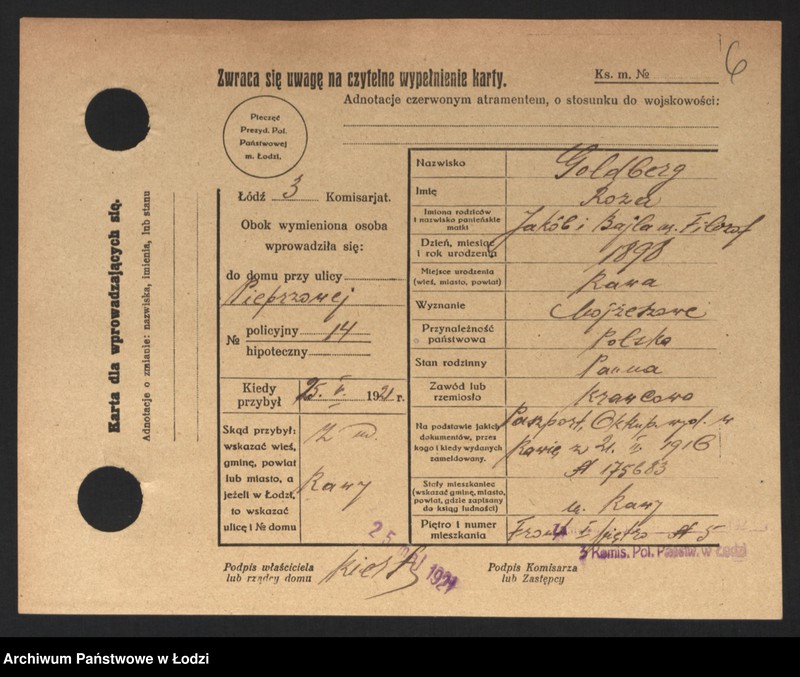 6
Zwraca się uwagę na czytelne wypełnienie karty.
Ks. m. №
Adnotacje czerwonym atramentem, o stosunku do wojskowości:
Pieczęć
Prezyd. Pol.
Państwowej
m. Łodzi.
Karta dla wprowadzających się.
Adnotacje o zmianie: nazwiska, imienia, lub stanu
Łódź 3 Komisarjat.
Obok wymieniona osoba
wprowadziła się:
do domu przy ulicy
Pieprzowej
№ policyjny 14
hipoteczny
Kiedy przybył 25. V. 1921 r.
Skąd przybył:
wskazać wieś,
gminę, powiat
lub miasto, a
jeżeli w Łodzi,
to wskazać
ulicę i № domu
z m.
Rawy
Nazwisko Goldberg
Imię Roza
Imiona rodziców
i nazwisko panieńskie
matki
Jakób i Bajla m. Filozof
Dzień, miesiąc
i rok urodzenia
1898
Miejsce urodzenia
(wieś, miasto, powiat)
Rawa
Wyznanie Mojżeszowe
Przynależność
państwowa
Polska
Stan rodzinny Panna
Zawód lub
rzemiosło
Krawcowa
Na podstawie jakich
dokumentów, przez
kogo i kiedy wydanych
zameldowany.
Paszport. Okkup. wyd. w
Rawie z 21. V. 1916
№ 175683
Stały mieszkaniec
(wskazać gminę, miasto,
powiat, gdzie zapisany
do ksiąg ludności)
m. Rawy
Piętro i numer
mieszkania
Front I piętro № 5
25 MAJ 1921
3 Komis. Pol. Państw. w Łodzi
Podpis właściciela
lub rządcy domu
Podpis Komisarza
lub Zastępcy
Archiwum Państwowe w Łodzi